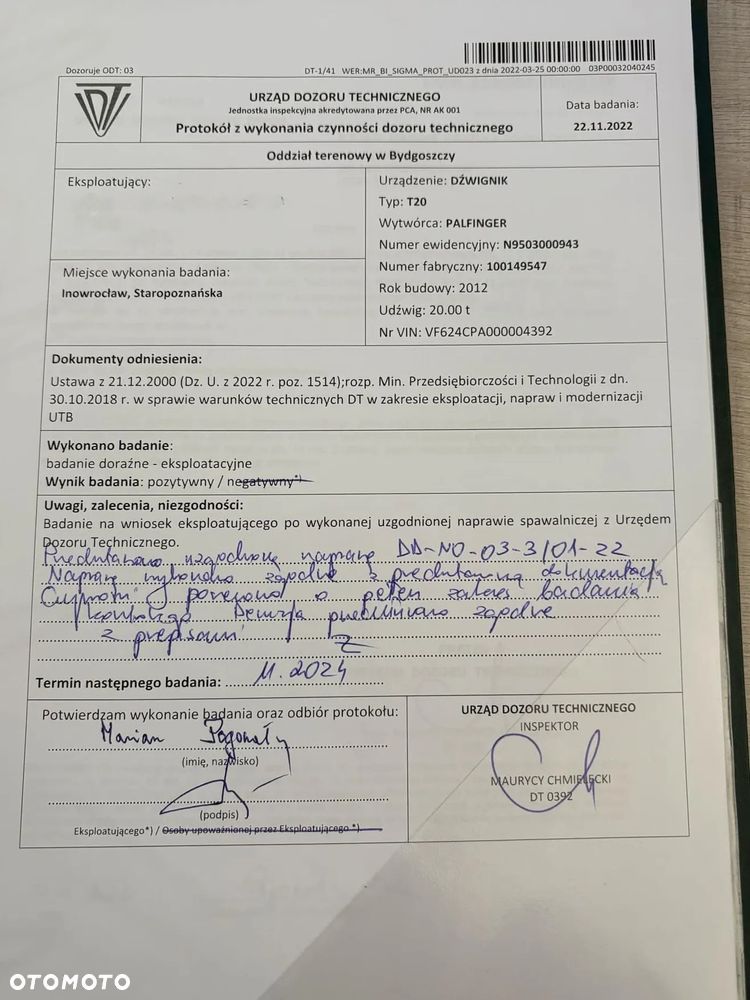 Dozoruje ODT: 03
DT-1/41 WER:MR_BI_SIGMA_PROT_UD023 z dnia 2022-03-25 00:00:00 03P00032040245
UDT
URZĄD DOZORU TECHNICZNEGO
Jednostka inspekcyjna akredytowana przez PCA, NR AK 001
Protokół z wykonania czynności dozoru technicznego
Data badania:
22.11.2022
Oddział terenowy w Bydgoszczy
Eksploatujący:
Miejsce wykonania badania:
Inowrocław, Staropoznańska
Urządzenie: DŹWIGNIK
Typ: T20
Wytwórca: PALFINGER
Numer ewidencyjny: N9503000943
Numer fabryczny: 100149547
Rok budowy: 2012
Udźwig: 20.00 t
Nr VIN: VF624CPA000004392
Dokumenty odniesienia:
Ustawa z 21.12.2000 (Dz. U. z 2022 r. poz. 1514);rozp. Min. Przedsiębiorczości i Technologii z dn.
30.10.2018 r. w sprawie warunków technicznych DT w zakresie eksploatacji, napraw i modernizacji
UTB
Wykonano badanie:
badanie doraźne - eksploatacyjne
Wynik badania: pozytywny / negatywny*)
Uwagi, zalecenia, niezgodności:
Badanie na wniosek eksploatującego po wykonanej uzgodnionej naprawie spawalniczej z Urzędem
Dozoru Technicznego.
Przedstawiono uzgodnioną naprawę DD-NO-03-3/01-22
Naprawę wykonano zgodnie z przedstawioną dokumentacją
o pełen zakres badania
zgodnie
z przepisami
Termin następnego badania: 11.2024
Potwierdzam wykonanie badania oraz odbiór protokołu:
Marian
(imię, nazwisko)
(podpis)
Eksploatującego*) / Osoby upoważnionej przez Eksploatującego *)
URZĄD DOZORU TECHNICZNEGO
INSPEKTOR
MAURYCY CHMIELECKI
DT 0392
OTOMOTO